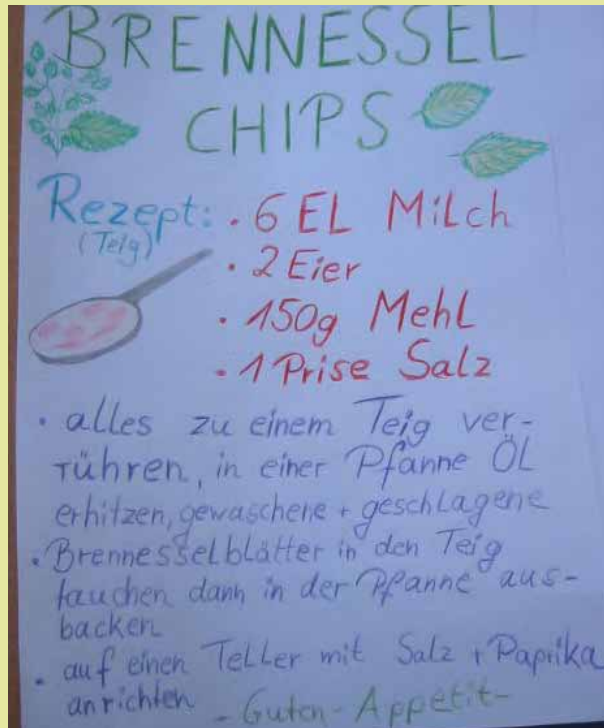 BRENNESSEL
CHIPS
Rezept: · 6 EL Milch
(Teig)
· 2 Eier
· 150g Mehl
· 1 Prise Salz
· alles zu einem Teig ver-
rühren, in einer Pfanne Öl
erhitzen, gewaschene + geschlagene
· Brennesselblätter in den Teig
tauchen dann in der Pfanne aus-
backen
· auf einen Teller mit Salz + Paprika
anrichten
- Guten - Appetit -